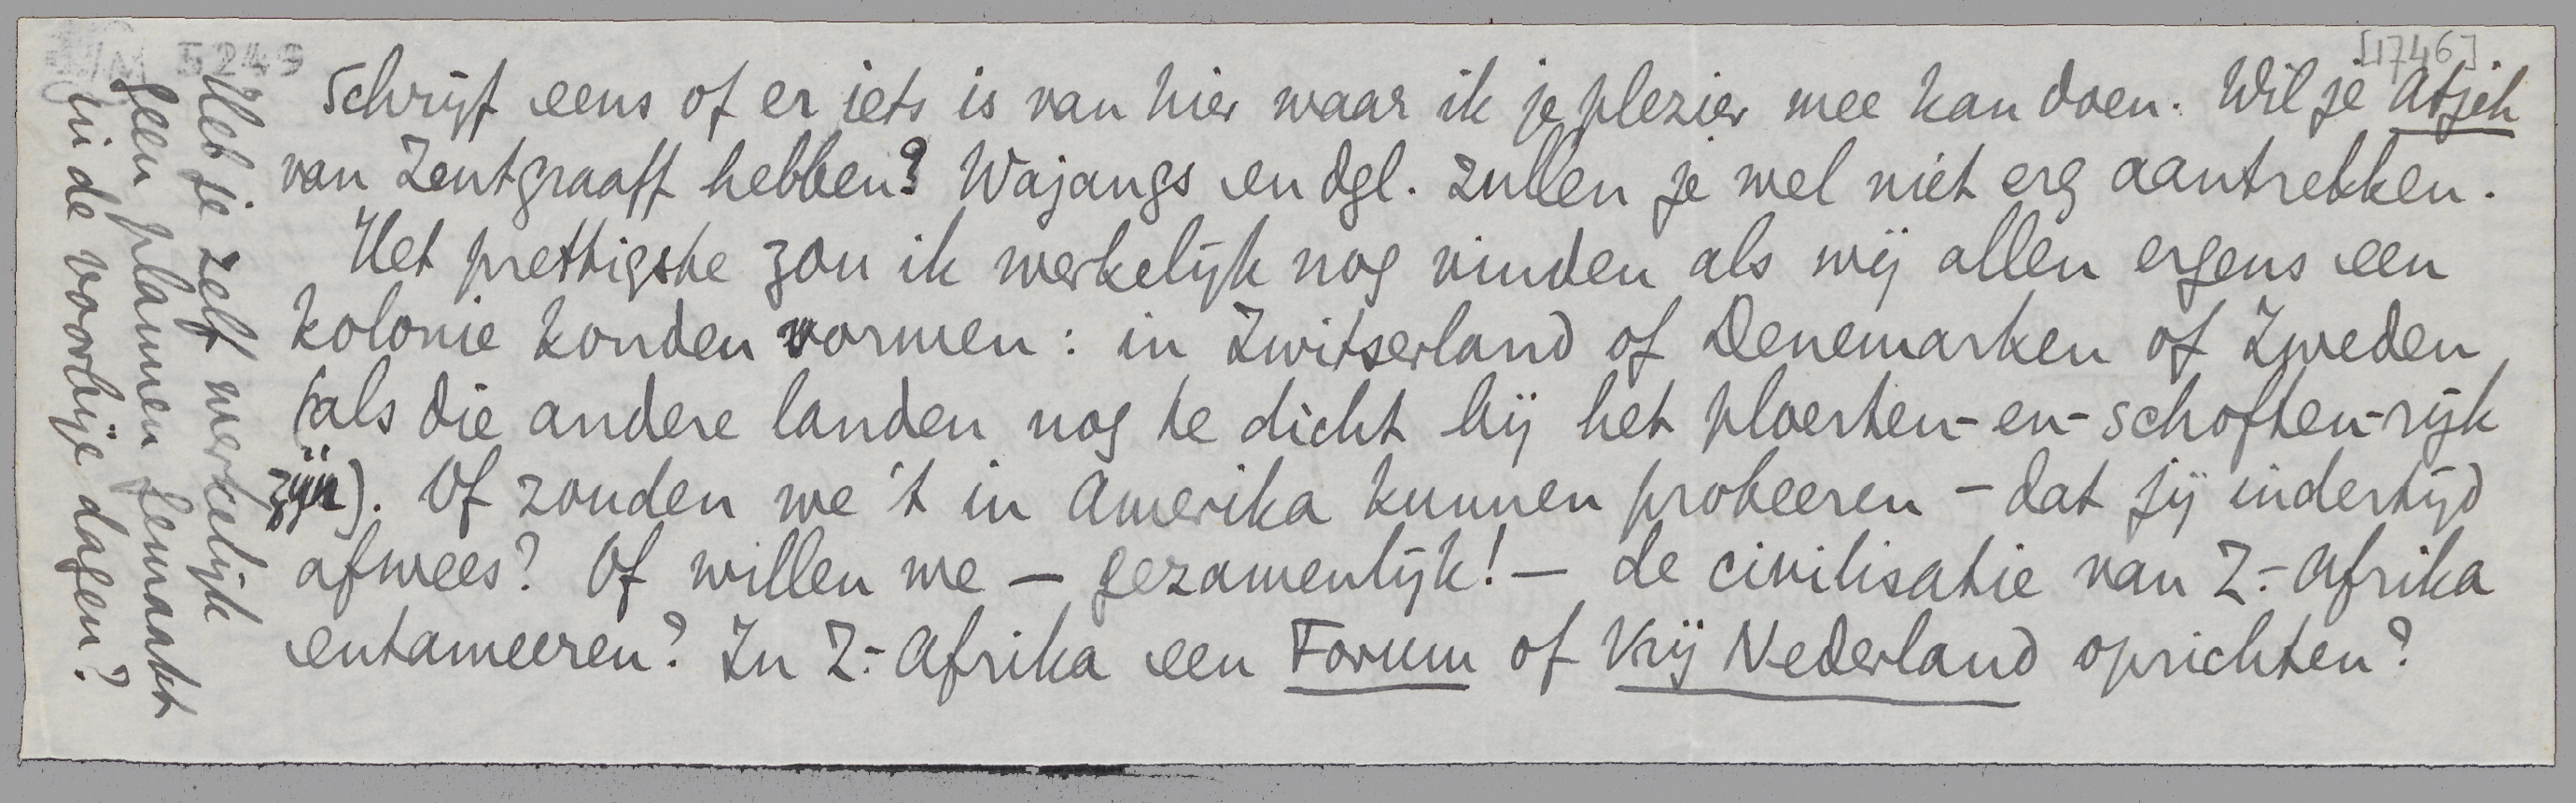 5249
[1746]
Schrijf eens of er iets is van hier waar ik je plezier mee kan doen. Wil je Atjeh
van Zentgraaff hebben? Wajangs en dgl. zullen je wel niet erg aantrekken.
Het prettigste zou ik werkelijk nog vinden als wij allen ergens een
kolonie konden vormen: in Zwitserland of Denemarken of Zweden
(als die andere landen nog te dicht bij het ploerten-en-schoften-rijk
zijn). Of zouden we 't in Amerika kunnen probeeren – dat jij indertijd
afwees? Of willen we – gezamenlijk! – de civilisatie van Z.-Afrika
entameeren? In Z.-Afrika een Forum of Vrij Nederland oprichten?
Heb je zelf werkelijk
geen plannen gemaakt
in de voorbije dagen?